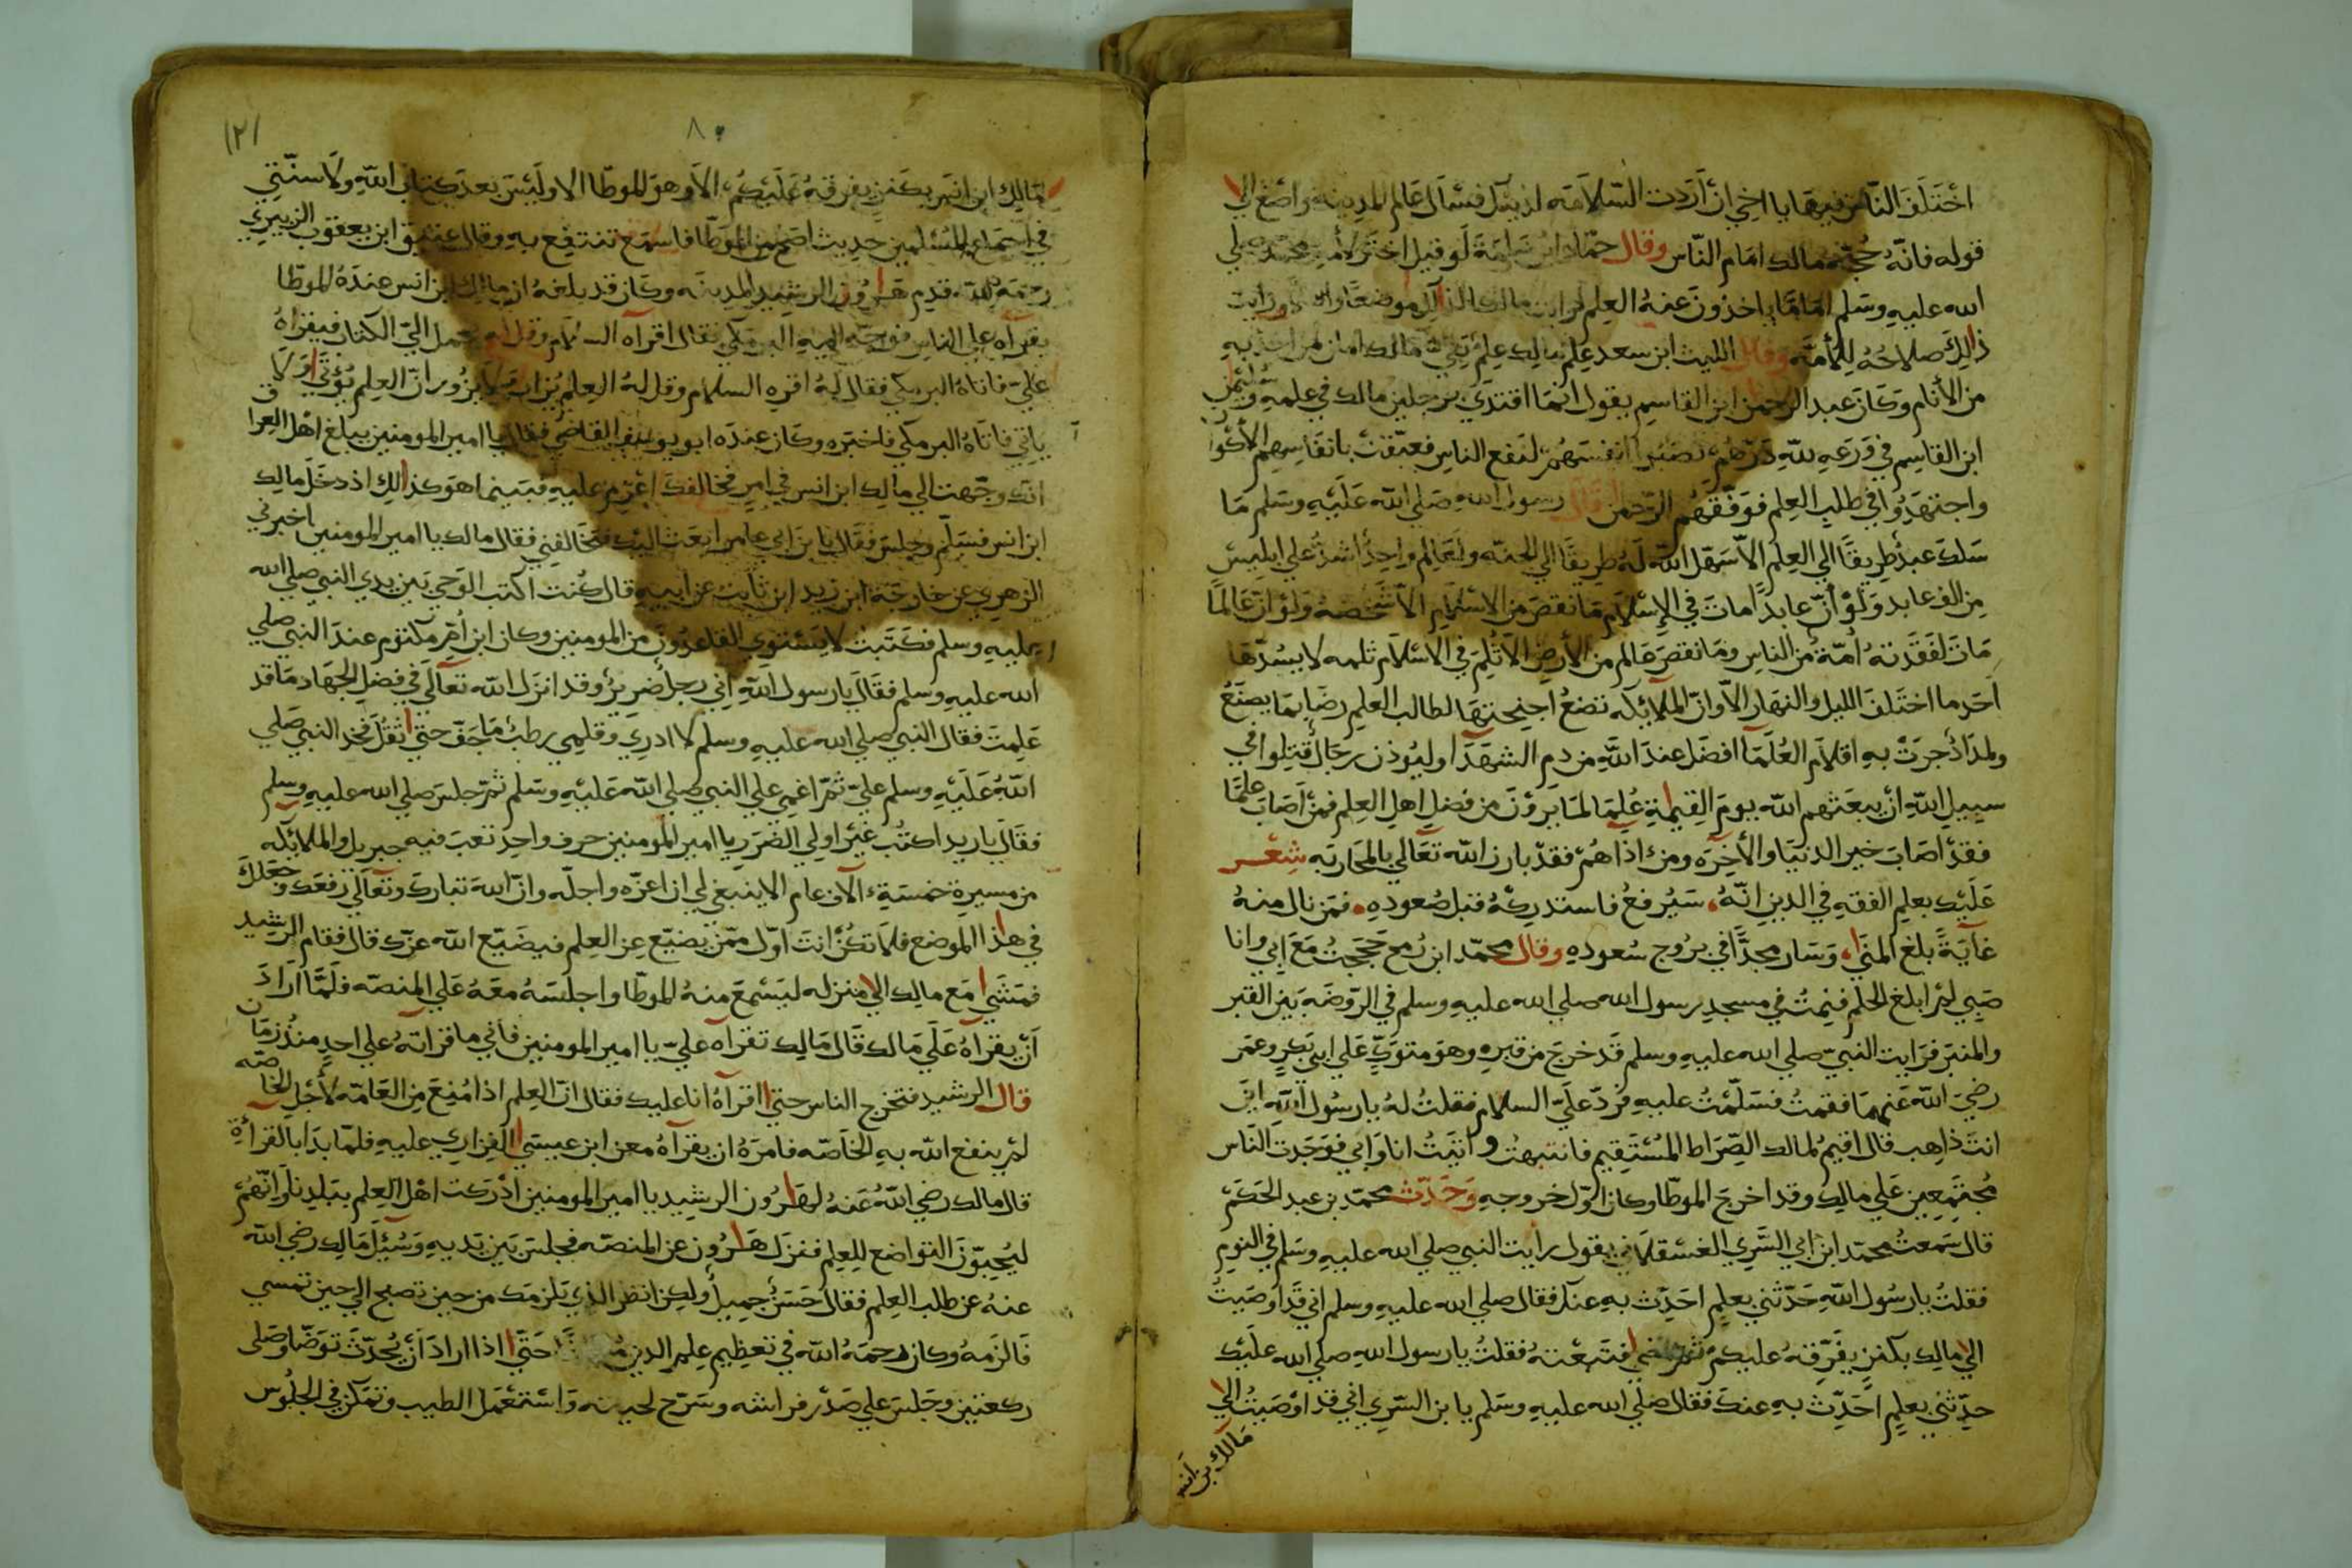 اختَلَفَ النّاس فيهَا يا اخي ان أرَدت السّلامَه لدينك فسَال عَالم المدينه واصغ الي
قوله فانّهُ حُجّة مالك امَام النّاس وقال حمّاد ابن سَلمَة لَو قيل اختَر لأمة محمد صلي
الله عليهِ وسَلم امَامًا ياخذونَ عَنهُ العِلم لرايت مالك لذالك موضعًا ورايت
ذالِكَ صلاحُهُ لِلأمّه وقال الليث ابن سعد عِلم مالك عِلم تقيّ مالك امان لمن اخذ بهِ
من الأنام وَكانَ عبد الرحمن ابن القاسِم يقول انمَا اقتدَي برجلين مالك في علمهِ وسُليمن
ابن القاسِم في وَرَعهِ للهِ دَرّهُم نصَبُوا انفسَهُم لنَفع الناسِ فعبّقت بانفاسِهم الأكوان
واجتهَدُوا في طلبِ العِلم فوَفقَهُم الرّحمن قالَ رسول اللهِ صَلي اللهُ عَليهِ وسَلم مَا
سَلكَ عبدٌ طِريقًا الي العِلم الاّ سَهّل اللهُ لَهُ طريقًا الي الجنّه ولعَالم واحِدٌ اشدُّ علي ابليسَ
مِن الف عابد وَلَوْ أنّ عابدًا ماتَ في الإسلام مَا نقصَ من الاسلام الاّ شَخصهُ وَلوْ انّ عَالمًا
مَاتَ لفَقدَتهُ أمّةٌ من الناسِ ومَا نقصَ عَالم من الأرضِ الاّ ثلِمَ في الاسْلام ثلمه لا يسُدّها
احَد ما اختَلفَ الليل والنهَار الاّ وان الملائكه تضعُ اجنِحتهَا لطالب العلم رضًا بمَا يصنَعُ
ولمدَادٌ جرَتْ بهِ اقلام العُلمَا افضَل عندَ اللهِ من دمِ الشهَدَا وليُوذن رجَالٌ قتِلوا في
سبيلِ اللهِ أنْ يبعَثهم الله يومَ القِيمَةِ عُلمَا لمَا يرَوْنَ من فضلِ اهلِ العِلم فمَنْ أصَابَ علمًا
فقدْ اصَابَ خير الدنيَا والأخِرَه ومنْ اذاهُمْ فقدْ بارز الله تعَالي بالمحَاربَه شِعْر
عَلَيْك بعلم الفقهِ في الدينِ انّهُ سَيُرفعُ فاستدرِكْهُ قبل صُعودِهِ فمَن نال منهُ
غايَةً بلغ المنَي وَسَار مجدًّا في برُوج سُعودهِ وقال محمّد ابن رُمح حَججتُ مَعَ ابي وانا
صَبي لمْ ابلغ الحلم فنِمتُ في مسجدِ رسول الله صلي الله عليهِ وسلم في الرّوضَة بَين القبر
والمنبَر فرَايت النبيّ صلي الله عليهِ وسلم قَد خرجَ من قبرهِ وهوَ متوَكي عَلي ابي بَكرٍ وعمَر
رضيَ اللهُ عَنهمَا فقمتُ فسَلّمْتُ عليهِ فردّ علَيّ السلام فقلتُ لهُ يارسُول اللهِ ايَن
انتَ ذاهِب قال اقيمُ لمالك الصِّرَاط المُسْتَقِيم فانتبهتُ واتيَتُ انا وَابي فوَجَدت النّاس
مُجْتَمِعِين عَلي مالِك وقد اخرجَ الموطّا وكان اوّل خروجهِ وَحَدّث محمّد بن عبد الحَكَم
قال سَمعتُ محمّد ابن ابي السَّرِي الغسْقلاني يقول رأيت النبي صلي الله عليهِ وسَلم في النومِ
فقلتُ يارسُول اللهِ حَدّثني بعِلمٍ احَدِّث بهِ عنك فقال صلي الله عليهِ وسلم اني قَد أوْصَيتُ
الي مالِك بكنزٍ يفَرّقهُ عليكُم ثمّ مضي فتَبعْتهُ فقلتُ يارسول اللهِ صلي الله علَيْك
حدّثني بعلمٍ احَدّث بهِ عنكَ فقال صَلّي الله عليهِ وسَلم يا بن السّرِي اني قد اوْصَيتُ الي
مَالك بن انس
١٢١
٨٠
مَالِك ابن انس بكَنزٍ يفرقهُ عَلَيْكُم الاَ وهوَ الموطّا الا وليْسَ بَعدَ كتاب اللهِ ولاَ سنّتي
في اجمَاع المُسْلمين حَدِيث اصَحّ من الموَطّا فاسمَع تنتفِع بهِ وقال عتيق ابن يعقوب الزبيري
رحمَهُ اللهُ قدِم هَارُون الرشيد المدينَه وكان قد بلغهُ ان مالك ابن انس عندَهُ الموطّا
يقرَأه علي الناسِ فوَجّه اليهِ البرمكي فقال اقرأه السلام وقل لهُ يحمل اليّ الكتاب فيقرَاهُ
عليّ فاتاهُ البرمكي فقال لهُ اقرهِ السلام وقل لهُ العِلم يُزار وَلا يزُور انّ العِلم يُؤتَي وَلا
ياتي فاتاهُ البرمكي فاخبَره وكان عندَه ابويوسف القاضي فقال يا امير المومنين يبلغ اهل العراق
انك وجّهت الي مالِك ابن انس في امرٍ فخالفكَ اعْزم عليهِ فبَينما هوَ كذالِك اذ دخَل مالِك
ابن انس فسَلّم وجلسَ فقال يا بن ابي عامر ابعَث اليك فتخَالفني فقال مالك يا امير المومنين اخبرني
الزهري عن خارجَة ابن زيد ابن ثابت عن ابيهِ قال كُنت اكتب الوَحي بَين يدي النبي صلي الله
عليهِ وسلم فكَتَبتُ لا يَسْتوي القاعِدُون من المومنين وكان ابن أمّ مكتوم عندَ النبي صلي
الله عليهِ وسلم فقالَ يارسول اللهِ اني رجلٌ ضرِيرٌ وقد انزَل الله تعَالي في فضلِ الجهَاد مَا قد
عَلِمتَ فقال النبي صلي الله عليهِ وسلم لا ادرِي وقلمِي رطبٌ مَا جَفّ حتي اثقُلَ فخد النبي صَلي
اللهُ عَليهِ وسلم عليّ ثمّ اغمِي علي النبي صلي اللهُ عَليْهِ وسَلم ثمّ جلسَ صلي الله عليهِ وسلم
فقالَ يازيد اكتُب غيْر اولي الضرَر يا امير المومنين حرف واحِد تعبَ فيه جبريل والملائكه
من مسيرة خمسَةِ الآف عام الا ينبغي لي ان اعزّه واجلّه وانّ اللهَ تبارك وتعَالي رفعَك وجَعَلكَ
في هذا الموضع فلا تكُنْ انتَ اوّل ممّن يضيّع عِز العِلم فيضَيّع الله عزّك قال فقام الرشيد
فمَشَي مَع مالِك الي منزله ليَسْمعَ منهُ الموطّا واجلسَهُ معَهُ عَلي المنصّه فلمّا ارَادَ
أنْ يقراهُ عَلَي مَالك قَال مَالِك تقرأه عليّ يا امير المومنين فأني ما قراتهُ علي احدٍ منذُ زمَان
قال الرشيد فتخرج الناس حتي اقرأهُ انا عليك فقال انّ العِلم اذا مُنِعَ مِن العَامّه لأَجْلِ الخاصّه
لمْ ينفع الله بهِ الخاصّه فامرَهُ ان يقرَأهُ معن ابن عيسَي الفزاري عليهِ فلمّا بدَا بالقرأة
قال مالك رضي اللهُ عَنهُ لهَارُون الرشيد يا امير المومنين ادْرَكت اهْل العِلم ببَلدِنا وانّهُمْ
ليُحِبّونَ التواضع للِعِلم فنزَل هَارُون عن المنصّه فجلسَ بَين يَديهِ وَسُئِلَ مَالِك رضي الله
عنهُ عن طلب العِلم فقال حَسَنٌ جمِيلٌ ولكِن انظر الذي يَلزمَك من حين تصبح الي حين تمسي
فَالزمَهُ وكان رحمَهُ اللهُ في تعَظيمِ علمِ الدين حَتّي اذا ارادَ أنْ يُحدّثَ توَضّا وَصَلي
ركعتين وجَلسَ علي صَدْر فراشه وسَرّح لحيته وَاسْتعمَل الطيب وتمَكّن في الجلوُس